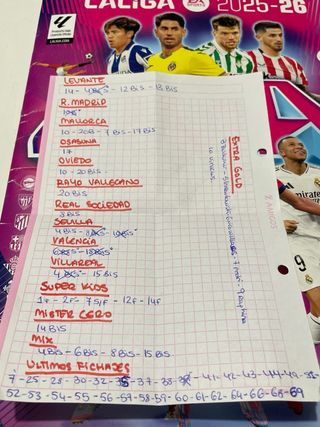 LALIGA
EA SPORTS
2025-26
LALIGA.COM
LEVANTE
14 - 4BIS - 12BIS - 18BIS
R. MADRID
MALLORCA
10 - 20B - 7BIS - 17BIS
OSASUNA
17
OVIEDO
10 - 20BIS -
RAYO VALLECANO
20BIS
REAL SOCIEDAD
3BIS
SEVILLA
4BIS - 8BIS - 19BIS
VALENCIA
6BIS - 18BIS
VILLAREAL
4BIS - 15BIS
SUPER KIDS
17 - 2F - 7S/F - 12F - 14F
MISTER CERO
14BIS
MIX
4BIS - 6BIS - 8BIS - 15BIS
ULTIMOS FICHAJES
7 - 25 - 28 - 30 - 32 - 35 - 37 - 38 - 41 - 42 - 43 - 44 - 49 - 51
52 - 53 - 54 - 55 - 56 - 59 - 58 - 59 - 60 - 61 - 62 - 64 - 66 - 68 - 69
EXTRA GOLD
10 VINICIUS